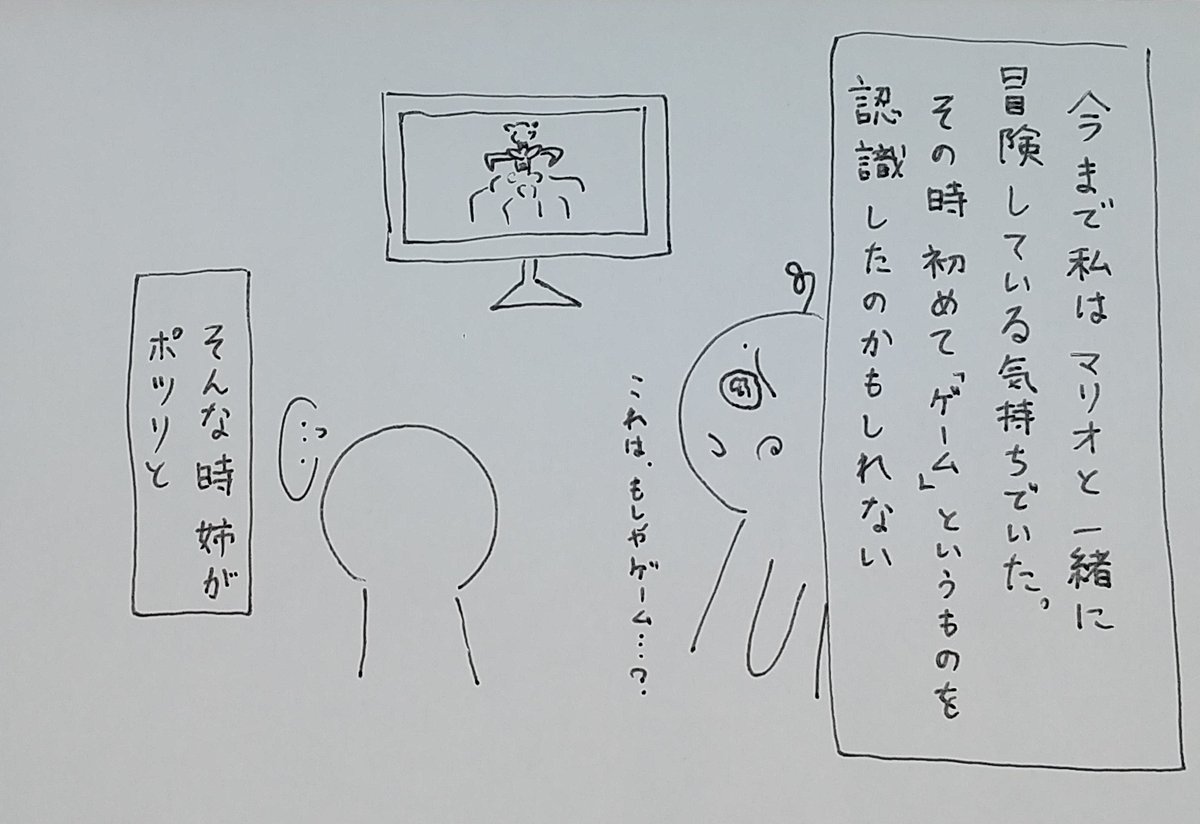 今まで私はマリオと一緒に
冒険している気持ちでいた。
その時初めて「ゲーム」というものを
認識したのかもしれない
これは、もしやゲーム…?
…?
そんな時姉が
ポツリと